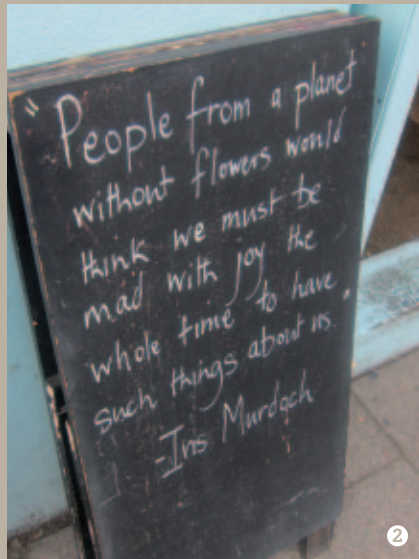 "People from a planet
without flowers would
think we must be
mad with joy the
whole time to have
such things about us."
-Iris Murdoch
2